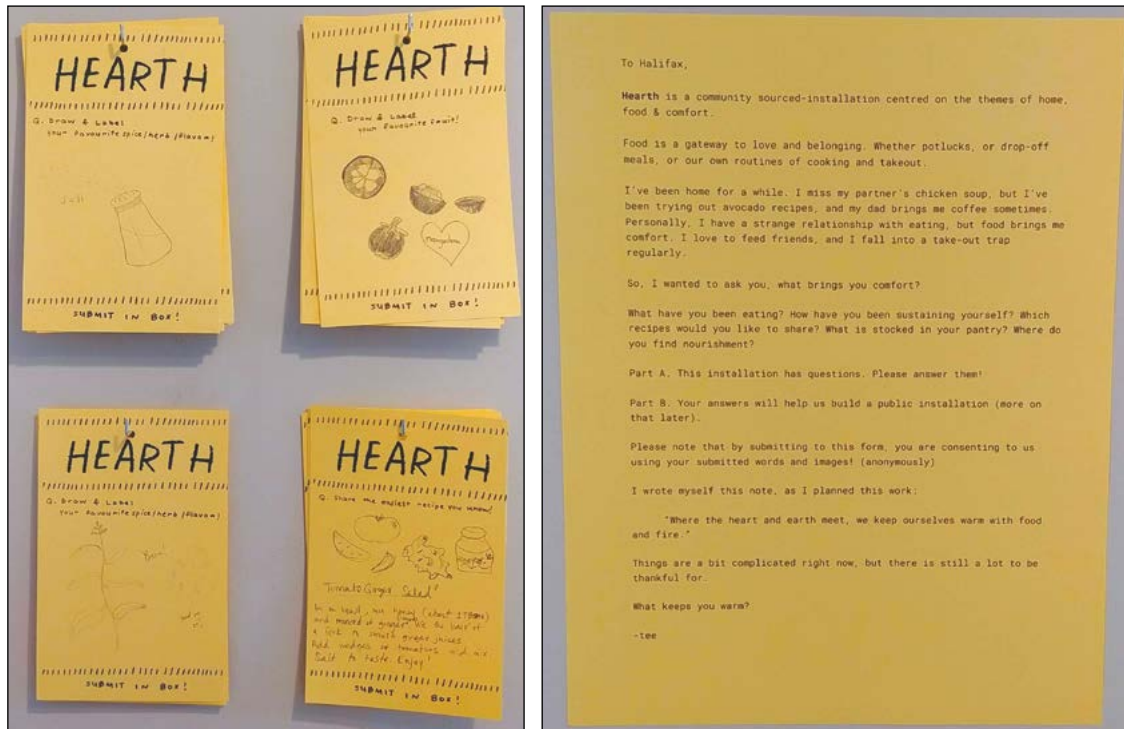 HEARTH
Q. Draw & Label
your favourite spice/herb/flavour!
SUBMIT IN BOX!
HEARTH
Q. Draw & Label
your favourite fruit!
Mangosteen
SUBMIT IN BOX!
HEARTH
Q. Draw & Label
your favourite spice/herb/flavour!
SUBMIT IN BOX!
HEARTH
Q. Share the easiest recipe you know!
Tomato Ginger Salad
In a bowl, mix honey (about 1 TBSP)
and minced ginger. Use the back of
a fork to smush ginger juices
Add wedges of tomatoes and mix.
Salt to taste. Enjoy!
SUBMIT IN BOX!
To Halifax,
Hearth is a community sourced-installation centred on the themes of home,
food & comfort.
Food is a gateway to love and belonging. Whether potlucks, or drop-off
meals, or our own routines of cooking and takeout.
I've been home for a while. I miss my partner's chicken soup, but I've
been trying out avocado recipes, and my dad brings me coffee sometimes.
Personally, I have a strange relationship with eating, but food brings me
comfort. I love to feed friends, and I fall into a take-out trap
regularly.
So, I wanted to ask you, what brings you comfort?
What have you been eating? How have you been sustaining yourself? Which
recipes would you like to share? What is stocked in your pantry? Where do
you find nourishment?
Part A. This installation has questions. Please answer them!
Part B. Your answers will help us build a public installation (more on
that later).
Please note that by submitting to this form, you are consenting to us
using your submitted words and images! (anonymously)
I wrote myself this note, as I planned this work:
"Where the heart and earth meet, we keep ourselves warm with food
and fire."
Things are a bit complicated right now, but there is still a lot to be
thankful for.
What keeps you warm?
-tee